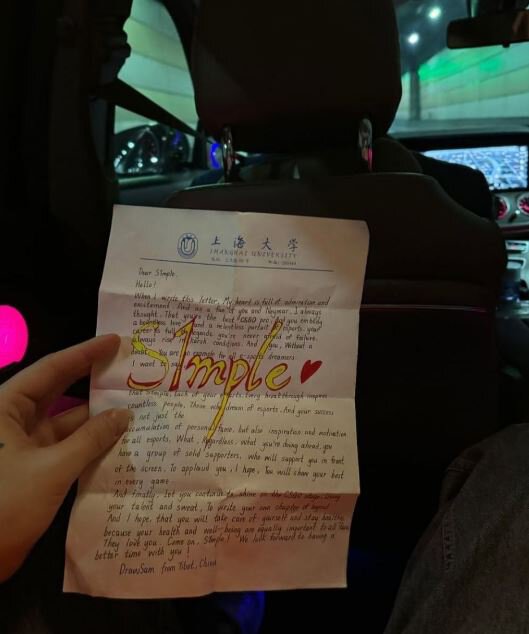 上海大学
SHANGHAI UNIVERSITY
Dear S1mple,
Hello!
When I write this letter, My heart is full of admiration and
excitement. And as a fan of you and Neymar, I always
thought, That you're the best CSGO pro. And you embody
a boundless love and a relentless pursuit esports. your
you're never afraid of failure.
always rise in harsh conditions. And you, Without a
doubt, You are an example for all e-sports dreamers.
I want to say
S1mple
that S1mple, each of your efforts, Every breakthrough inspires
countless people, Those who dream of esports. And your success
is not just the
accumulation of personal fame, but also inspiration and motivation
for all esports. What, Regardless, what you're doing ahead, you
have a group of solid supporters, who will support you in front
of the screen, To applaud you. I hope, You will share your best
in every game.
And finally, let you continue to shine on the CSGO stage. Using
your talent and sweat, To write your own chapter of legend
And I hope, that you will take care of yourself and stay healthy,
because your health and well-being are equally important to all
They love you. Come on, S1mple! We look forward to having a
better time with you!
DrawSam from Tibet, China